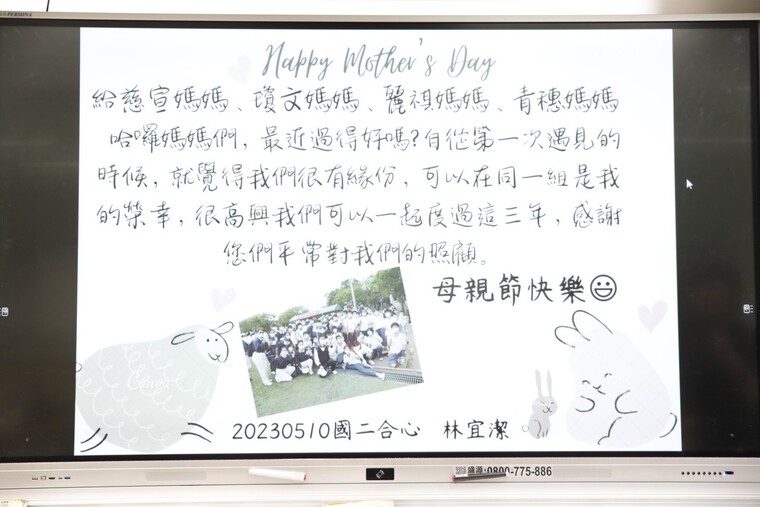 Happy Mother's Day
給慈宣媽媽、瓊文媽媽、麗祺媽媽、青穗媽媽
哈囉媽媽們，最近過得好嗎?自從第一次遇見的
時候，就覺得我們很有緣份，可以在同一組是我
的榮幸，很高興我們可以一起度過這三年，感謝
您們平常對我們的照顧。
母親節快樂😃
Canva
20230510國二合心 林宜潔
盛源:0800-775-886